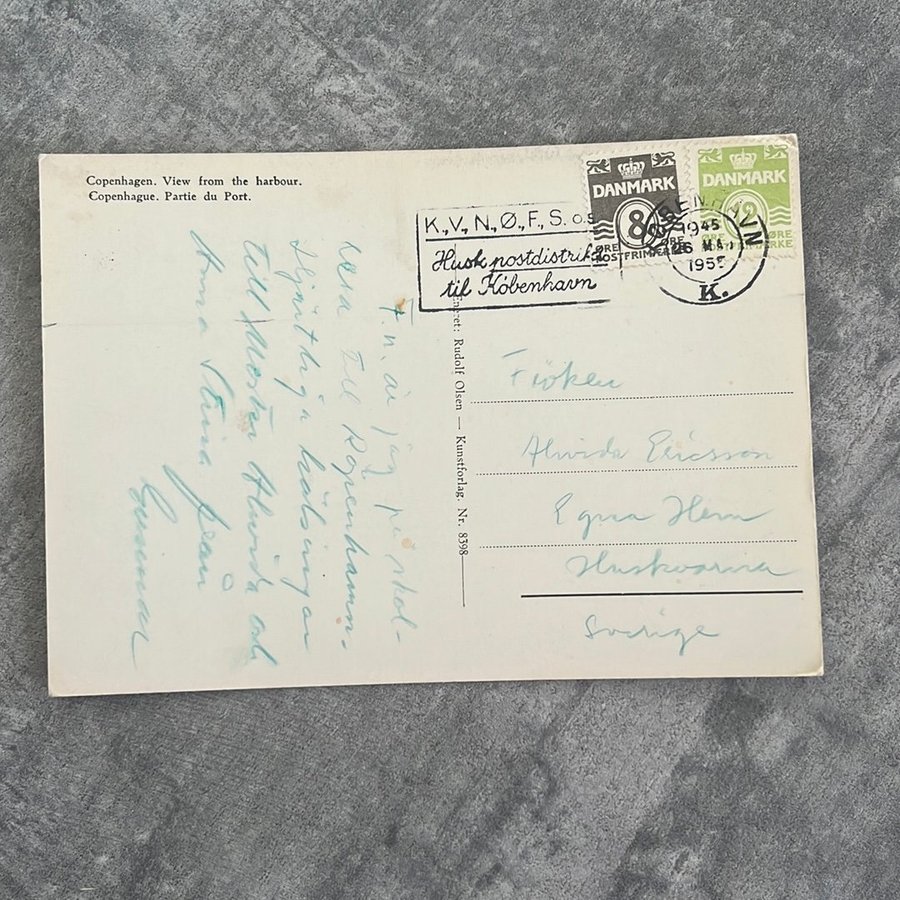 Copenhagen. View from the harbour.
Copenhague. Partie du Port.
K.,V., N.,Ø.,F., S. o.s
Husk postdistrikt
til København
DANMARK
8
ØRE
ØRE
POSTFRIMÆRKE
DANMARK
12
ØRE
KØBENHAVN
1945
26 MAJ
1955
K.
F.n. är jag på skol-
resa till Köpenhamn.
Hjärtliga hälsningar
till Moster Alvida och
Anna Stina från
Gunnar
Eneret: Rudolf Olsen — Kunstforlag. Nr. 8398
Fröken
Alvida Ericsson
Egna Hem
Huskvarna
Sverige